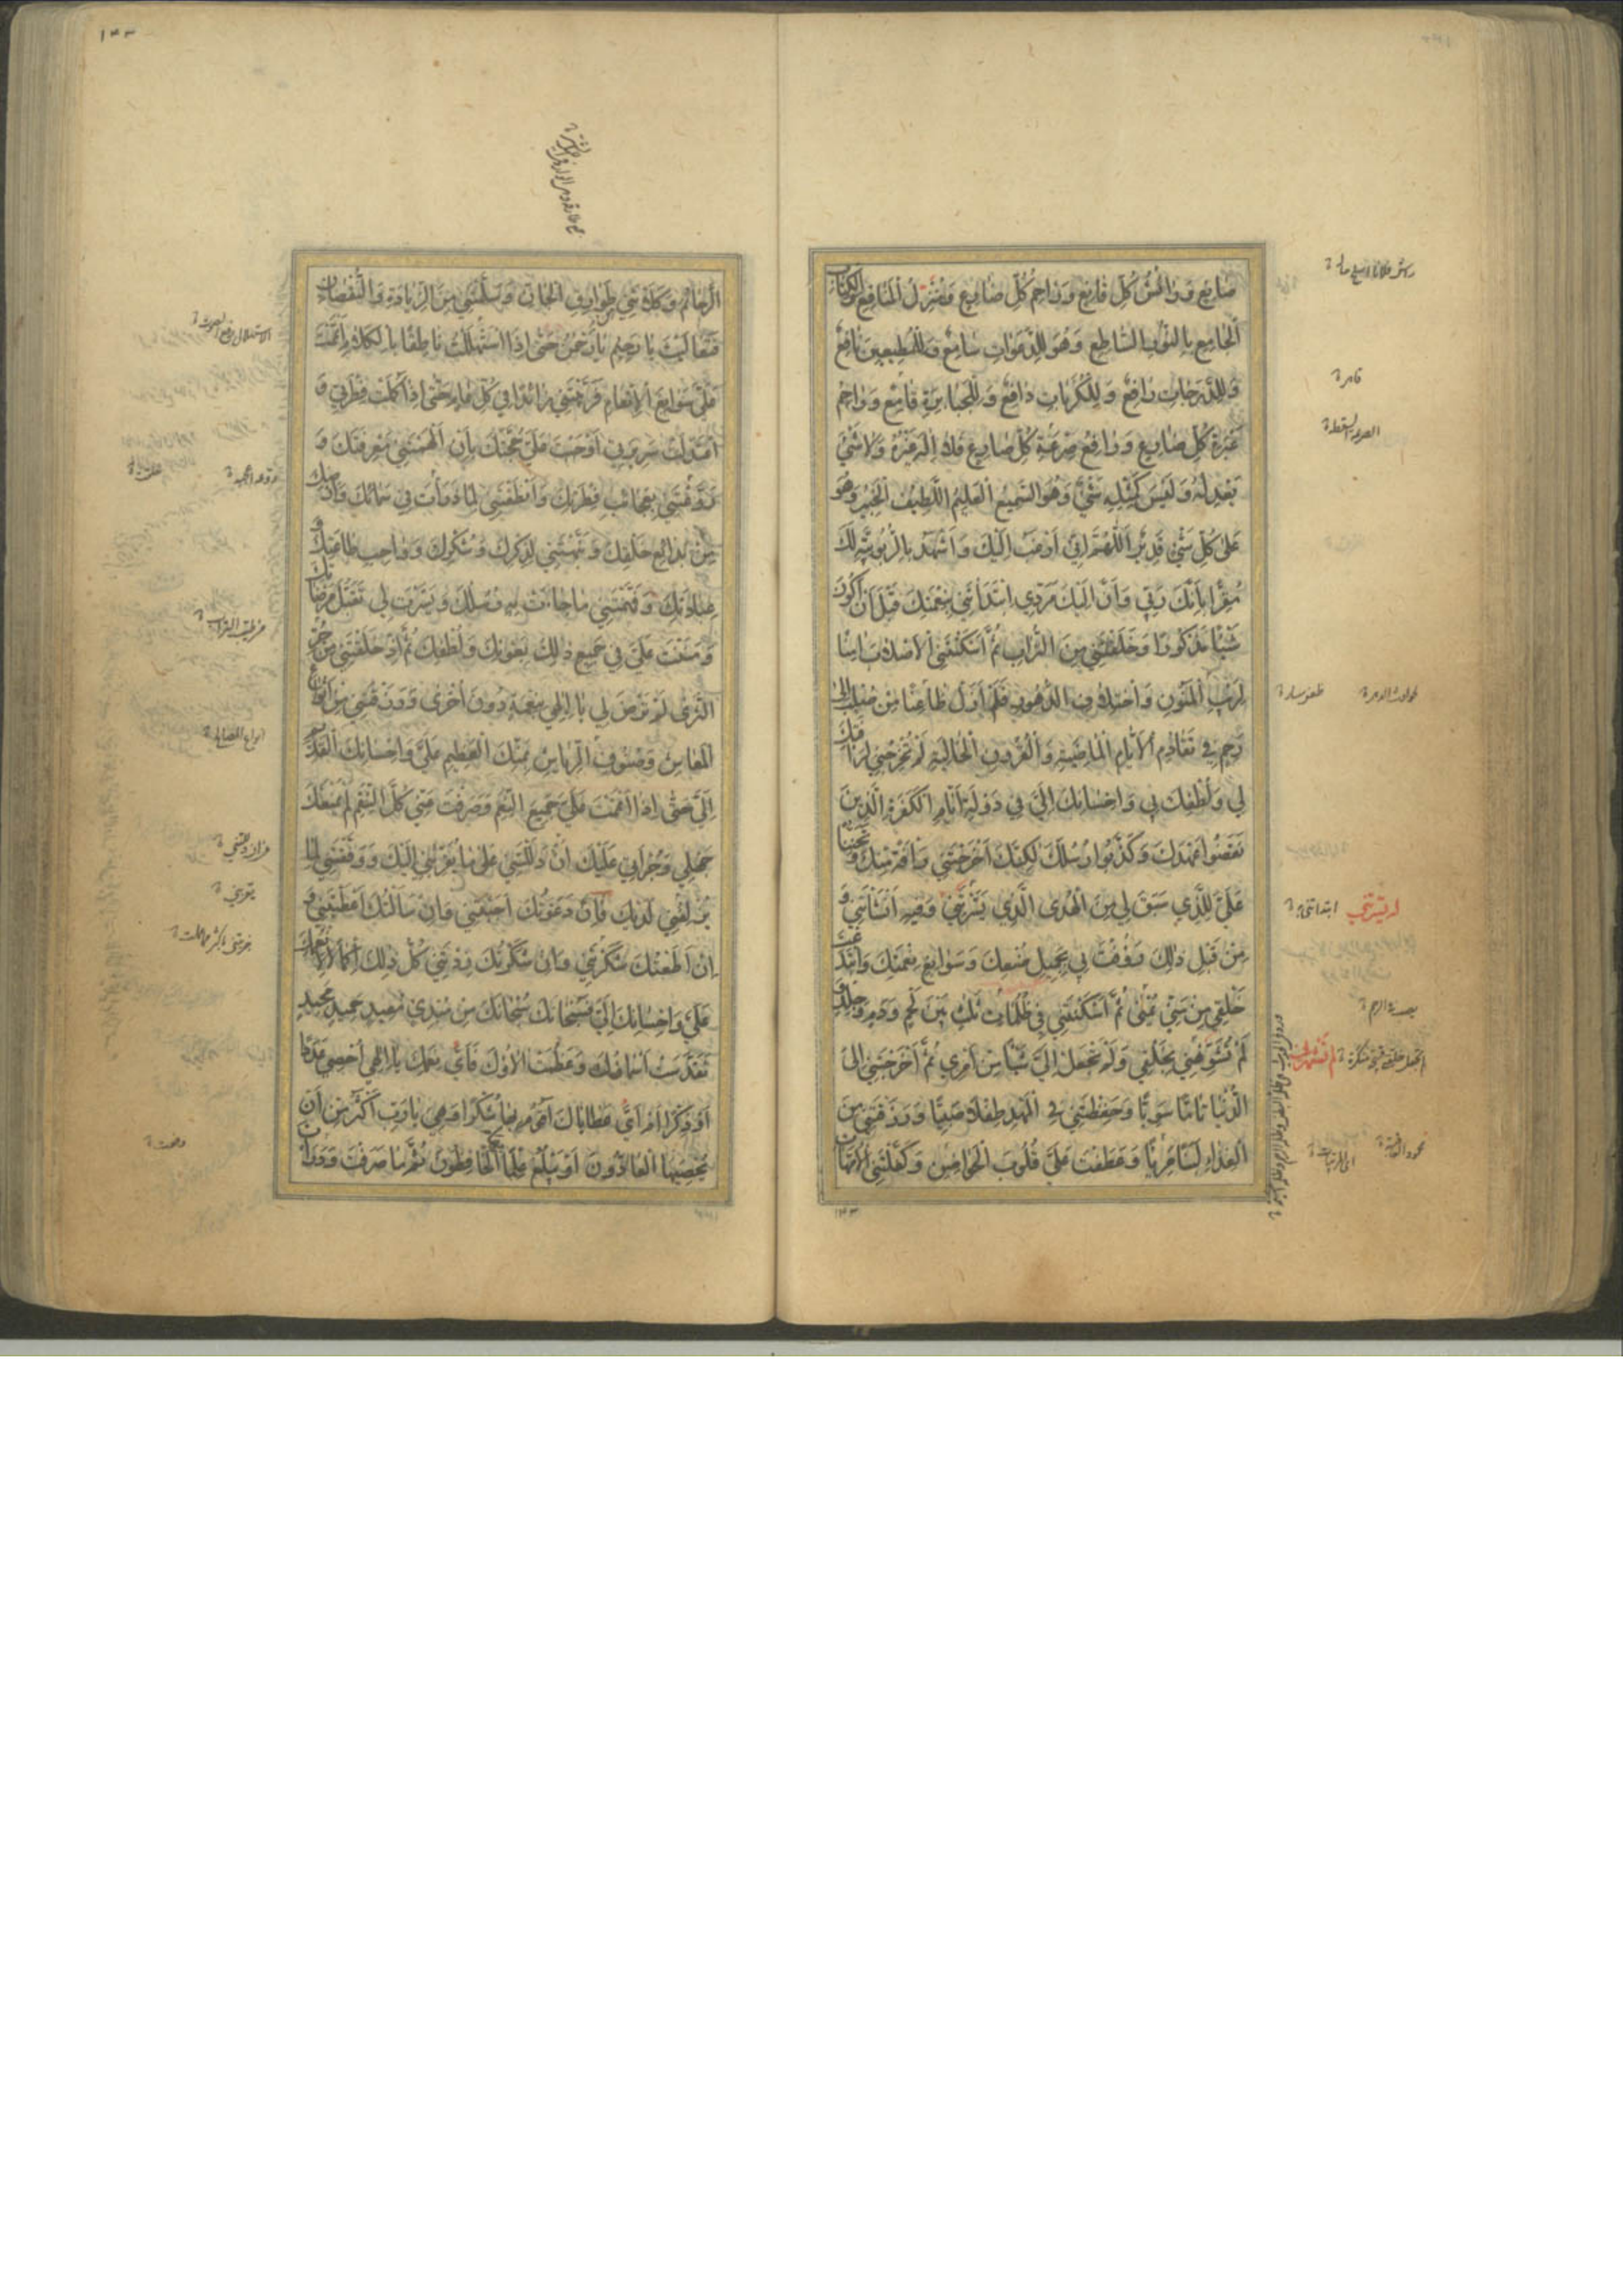 صٰانِعٍ وَرٰائِشُ كُلِّ قٰانِعٍ وَرٰاحِمُ كُلِّ ضٰارِعٍ وَمُنْزِلُ الْمَنٰافِعِ وَالْكِتٰابِ
الْجٰامِعِ بِالنُّورِ السّٰاطِعِ وَهُوَ لِلدَّعَوٰاتِ سٰامِعٌ وَلِلْمُطِيعِينَ نٰافِعٌ
وَلِلدَّرَجٰاتِ رٰافِعٌ وَلِلْكُرُبٰاتِ دٰافِعٌ وَلِلْجَبٰابِرَةِ قٰامِعٌ وَرٰاحِمُ
عَبْرَةِ كُلِّ ضٰارِعٍ وَدٰافِعُ ضَرْعَةِ كُلِّ ضٰارِعٍ فَلٰا اِلٰهَ غَيْرُهُ وَلٰا شَيْءَ
يَعْدِلُهُ وَلَيْسَ كَمِثْلِهِ شَيْءٌ وَهُوَ السَّمِيعُ الْعَلِيمُ اللَّطِيفُ الْخَبِيرُ وَهُوَ
عَلىٰ كُلِّ شَيْءٍ قَدِيرٌ اَللّٰهُمَّ اِنِّي اَرْغَبُ اِلَيْكَ وَاَشْهَدُ بِالرُّبُوبِيَّةِ لَكَ
مُقِرًّا بِاَنَّكَ رَبِّي وَاَنَّ اِلَيْكَ مَرَدِّي ابْتَدَأْتَنِي بِنِعْمَتِكَ قَبْلَ اَنْ اَكُونَ
شَيْئًا مَذْكُورًا وَخَلَقْتَنِي مِنَ التُّرٰابِ ثُمَّ اَسْكَنْتَنِي الْاَصْلٰابَ اٰمِنًا
لِرَيْبِ الْمَنُونِ وَاخْتِلٰافِ الدُّهُورِ فَلَمْ اَزَلْ ظٰاعِنًا مِنْ صُلْبٍ اِلىٰ
رَحِمٍ فِي تَقٰادُمِ الْاَيّٰامِ الْمٰاضِيَةِ وَالْقُرُونِ الْخٰالِيَةِ لَمْ تُخْرِجْنِي لِرَأْفَتِكَ
لِي وَلُطْفِكَ بِي وَاِحْسٰانِكَ اِلَيَّ فِي دَوْلَةِ اَيّٰامِ الْكَفَرَةِ الَّذِينَ
نَقَضُوا عَهْدَكَ وَكَذَّبُوا رُسُلَكَ لٰكِنَّكَ اَخْرَجْتَنِي رَأْفَةً مِنْكَ وَتَحَنُّنًا
عَلَيَّ لِلَّذِي سَبَقَ لِي مِنَ الْهُدَى الَّذِي يَسَّرْتَنِي وَفِيهِ اَنْشَأْتَنِي وَ
مِنْ قَبْلِ ذٰلِكَ رَؤُفْتَ بِي بِجَمِيلِ صُنْعِكَ وَسَوٰابِغِ نِعْمَتِكَ وَابْتَدَعْتَ
خَلْقِي مِنْ مَنِيٍّ يُمْنىٰ ثُمَّ اَسْكَنْتَنِي فِي ظُلُمٰاتٍ ثَلٰثٍ بَيْنَ لَحْمٍ وَدَمٍ وَجِلْدٍ
لَمْ تُشَوِّهْنِي بِخَلْقِي وَلَمْ تَجْعَلْ اِلَيَّ شَيْئًا مِنْ اَمْرِي ثُمَّ اَخْرَجْتَنِي اِلَى
الدُّنْيٰا تٰامًّا سَوِيًّا وَحَفِظْتَنِي فِي الْمَهْدِ طِفْلًا صَبِيًّا وَرَزَقْتَنِي مِنَ
الْغِذٰاءِ لَبَنًا مَرِيًّا وَعَطَفْتَ عَلَيَّ قُلُوبَ الْحَوٰاضِنِ وَكَفَّلْتَنِي الْاُمَّهٰاتِ
قاهرة
لم تشهرني
١٣٣
الرَّحٰائِمَ وَكَلَأْتَنِي مِنْ طَوٰارِقِ الْجٰانِّ وَسَلَّمْتَنِي مِنَ الزِّيٰادَةِ وَالنُّقْصٰانِ
فَتَعٰالَيْتَ يٰا رَحِيمُ يٰا رَحْمٰنُ حَتّىٰ اِذَا اسْتَهْلَلْتُ نٰاطِقًا بِالْكَلٰامِ اَتْمَمْتَ
عَلَيَّ سَوٰابِغَ الْاِنْعٰامِ فَرَبَّيْتَنِي زٰائِدًا فِي كُلِّ عٰامٍ حَتّىٰ اِذَا كَمُلَتْ فِطْرَتِي وَ
اعْتَدَلَتْ سَرِيرَتِي اَوْجَبْتَ عَلَيَّ حُجَّتَكَ بِاَنْ اَلْهَمْتَنِي مَعْرِفَتَكَ وَ
رَوَّعْتَنِي بِعَجٰائِبِ فِطْرَتِكَ وَاَنْطَقْتَنِي لِمٰا ذَرَأْتَ فِي سَمٰائِكَ وَاَرْضِكَ
مِنْ بَدٰائِعِ خَلْقِكَ وَنَبَّهْتَنِي لِذِكْرِكَ وَشُكْرِكَ وَوٰاجِبِ طٰاعَتِكَ وَ
عِبٰادَتِكَ وَفَهَّمْتَنِي مٰا جٰاءَتْ بِهِ رُسُلُكَ وَيَسَّرْتَ لِي تَقَبُّلَ مَرْضٰاتِكَ
وَمَنَنْتَ عَلَيَّ فِي جَمِيعِ ذٰلِكَ بِعَوْنِكَ وَلُطْفِكَ ثُمَّ اِذْ خَلَقْتَنِي مِنْ حُرِّ
الثَّرىٰ لَمْ تَرْضَ لِي يٰا اِلٰهِي بِنِعْمَةٍ دُونَ اُخْرىٰ وَرَزَقْتَنِي مِنْ اَنْوٰاعِ
الْمَعٰاشِ وَصُنُوفِ الرِّيٰاشِ بِمَنِّكَ الْعَظِيمِ عَلَيَّ وَاِحْسٰانِكَ الْقَدِيمِ
اِلَيَّ حَتّىٰ اِذٰا اَتْمَمْتَ عَلَيَّ جَمِيعَ النِّعَمِ وَصَرَفْتَ عَنِّي كُلَّ النِّقَمِ لَمْ يَمْنَعْكَ
جَهْلِي وَجُرْأَتِي عَلَيْكَ اَنْ دَلَلْتَنِي عَلىٰ مٰا يُقَرِّبُنِي اِلَيْكَ وَوَفَّقْتَنِي لِمٰا
يُزْلِفُنِي لَدَيْكَ فَاِنْ دَعَوْتُكَ اَجَبْتَنِي وَاِنْ سَاَلْتُكَ اَعْطَيْتَنِي وَ
اِنْ اَطَعْتُكَ شَكَرْتَنِي وَاِنْ شَكَرْتُكَ زِدْتَنِي كُلُّ ذٰلِكَ اِكْمٰالًا لِاَنْعُمِكَ
عَلَيَّ وَاِحْسٰانِكَ اِلَيَّ فَسُبْحٰانَكَ سُبْحٰانَكَ مِنْ مُبْدِئٍ مُعِيدٍ حَمِيدٍ مَجِيدٍ
تَقَدَّسَتْ اَسْمٰاؤُكَ وَعَظُمَتْ اٰلٰاؤُكَ فَاَيَّ نِعَمِكَ يٰا اِلٰهِي اُحْصِي عَدَدًا
اَوْ ذِكْرًا اَمْ اَيُّ عَطٰايٰاكَ اَقُومُ بِهٰا شُكْرًا وَهِيَ يٰا رَبِّ اَكْثَرُ مِنْ اَنْ
يُحْصِيَهَا الْعٰادُّونَ اَوْ يَبْلُغَ عِلْمًا بِهَا الْحٰافِظُونَ ثُمَّ مٰا صَرَفْتَ وَدَرَأْتَ